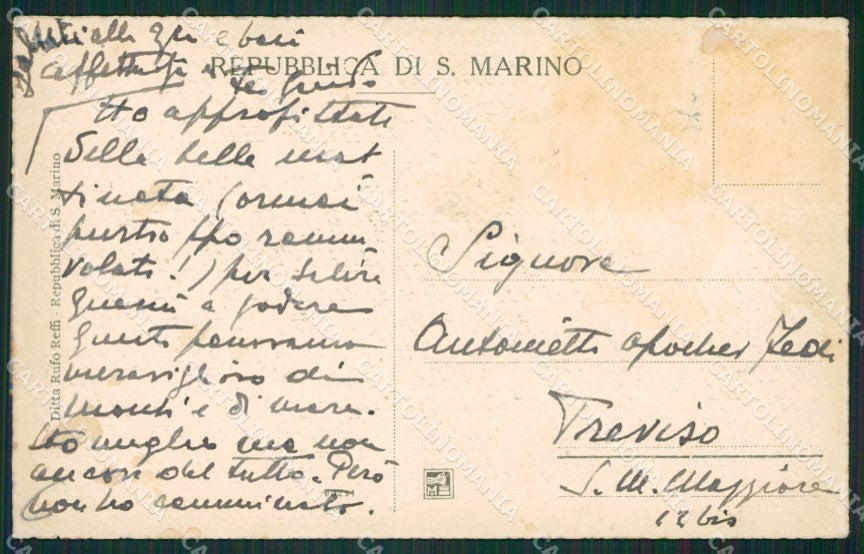 Saluti alla Gri e baci
affettuosi a te Guido
REPUBBLICA DI S. MARINO
Ho approfittato
della bella mat
tinata (ormai
purtroppo rannu
volata!) per salire
quassù a godere
questo panorama
meraviglioso di
monti e di mare.
Sto meglio ma non
ancora del tutto. Però
non ho camminato.
Ditta Rufo Reffi - Repubblica di S. Marino
Signora
Antonietta
Treviso
S. M. Maggiore
12 bis
CARTOLINOMANIA